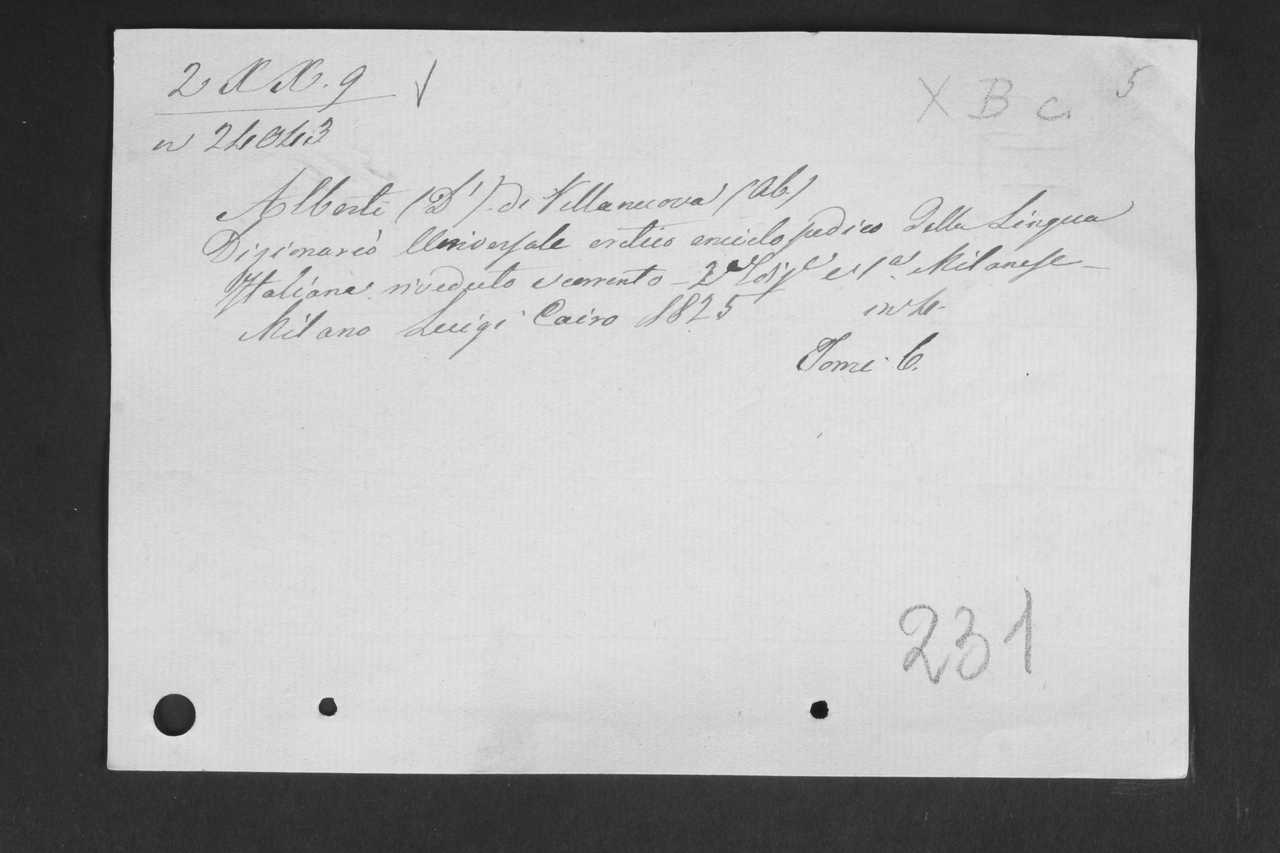 2 X X. 9
X B c. 5
n 24043
Alberti (D') di Villanuova (Ab.)
Dizionario Universale critico enciclopedico della Lingua
Italiana riveduto e corretto - 2ª Ediz.e e 1ª. Milanese -
Milano Luigi Cairo 1825 in 4.
Tomi 6.
231